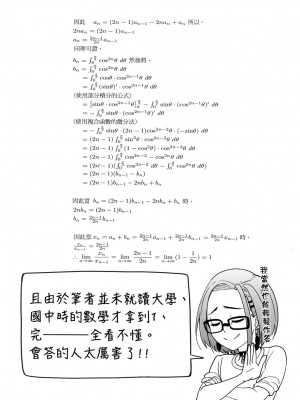 因此 a_n = (2n−1)a_{n−1} − 2na_n + a_n 所以，
2na_n = (2n−1)a_{n−1}
a_n = \frac{2n−1}{2n}a_{n−1}
同理可證，
b_n = ∫_0^{\frac{π}{2}} cos^{2n}θ dθ 然後將，
b_n = ∫_0^{\frac{π}{2}} cos^{2n}θ dθ
= ∫_0^{\frac{π}{2}} cosθ · cos^{2n−1}θ dθ
= ∫_0^{\frac{π}{2}} (sinθ)′ · cos^{2n−1}θ dθ
（使用部分積分的公式）
= [sinθ · cos^{2n−1}θ]_0^{\frac{π}{2}} − ∫_0^{\frac{π}{2}} sinθ · (cos^{2n−1}θ)′ dθ
= −∫_0^{\frac{π}{2}} sinθ · (cos^{2n−1}θ)′ dθ
（使用複合函數的微分法）
= −∫_0^{\frac{π}{2}} sinθ · (2n−1)cos^{2n−2}θ · (−sinθ) dθ
= (2n−1) ∫_0^{\frac{π}{2}} sin^2θ · cos^{2n−2}θ dθ
= (2n−1) ∫_0^{\frac{π}{2}} (1−cos^2θ) · cos^{2n−2}θ dθ
= (2n−1) ∫_0^{\frac{π}{2}} cos^{2n−2} − cos^{2n}θ dθ
= (2n−1)(∫_0^{\frac{π}{2}} cos^{2n−2}θ dθ − ∫_0^{\frac{π}{2}} cos^{2n}θ dθ)
= (2n−1)(b_{n−1} − b_n)
= (2n−1)b_{n−1} − 2nb_n + b_n
因此當 b_n = (2n−1)b_{n−1} − 2nb_n + b_n 時，
2nb_n = (2n−1)b_{n−1}
b_n = \frac{2n−1}{2n}b_{n−1}
因此當 x_n = a_n + b_n = \frac{2n−1}{2n}a_{n−1} + \frac{2n−1}{2n}b_{n−1} = \frac{2n−1}{2n}x_{n−1} 時，
\frac{x_n}{x_{n−1}} = \frac{2n−1}{2n}
∴ \lim_{n→∞} \frac{x_n}{x_{n−1}} = \lim_{n→∞} \frac{2n−1}{2n} = \lim_{n→∞} (1 − \frac{1}{2n}) = 1
且由於筆者並未就讀大學、
國中時的數學才拿到1、
完────全看不懂。
會答的人太厲害了!!
我當然也能輕鬆作答